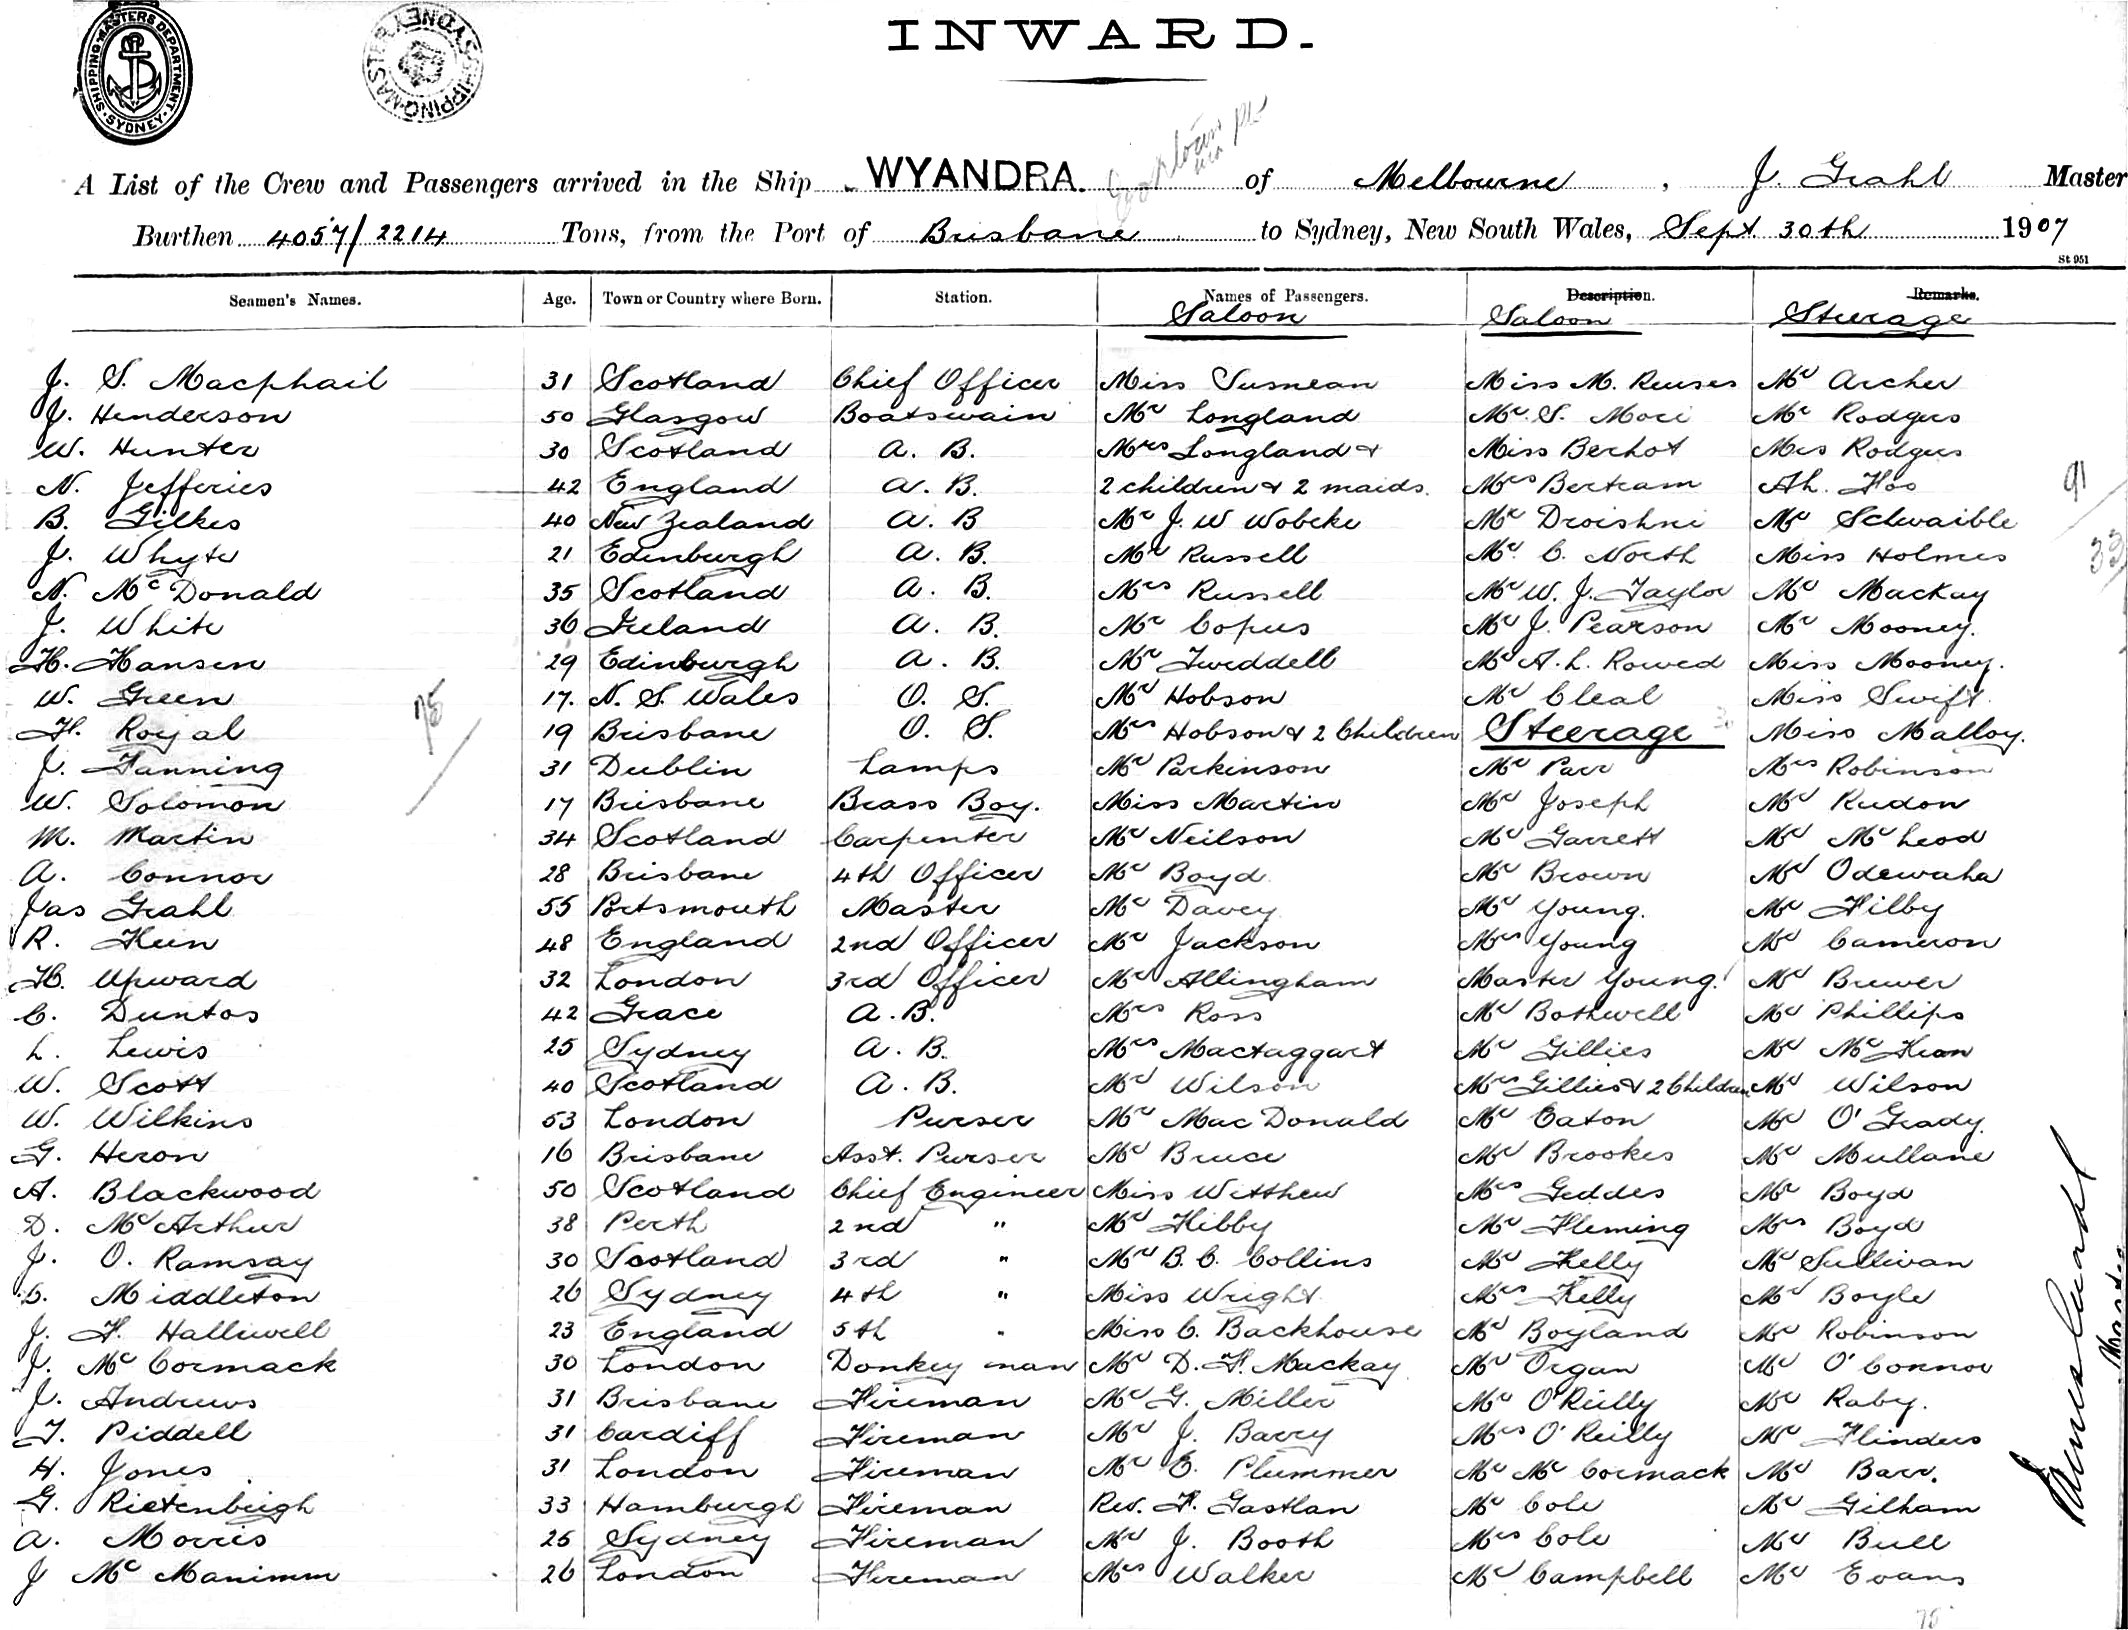 SHIPPING MASTERS DEPARTMENT
SYDNEY
SHIPPING MASTER SYDNEY
INWARD.
A List of the Crew and Passengers arrived in the Ship WYANDRA. of Melbourne, J. Grahl Master
Burthen 4057/2214 Tons, from the Port of Brisbane to Sydney, New South Wales, Sept 30th 1907
St 951
Seamen's Names. Age. Town or Country where Born. Station. Names of Passengers. Description. Remarks.
Saloon Saloon Steerage
J. S. Macphail 31 Scotland Chief Officer Miss Miss M. Mr Archer
J. Henderson 50 Glasgow Boatswain Mr Longland Mr. S. Mr Rodgers
W. Hunter 30 Scotland A. B. Mrs Longland & Miss Berhot Mrs Rodgers
N. Jefferies 42 England A. B. 2 children & 2 maids. Mrs Bertram Ah. Hoo
91
B. Gilkes 40 New Zealand A. B Mr J. W Wobcke Mr Mr Schwaible
J. Whyte 21 Edinburgh A. B. Mr Russell Mr. C. North Miss Holmes
33
N. McDonald 35 Scotland A. B. Mrs Russell Mr W. J. Taylor Mr Mackay
J. White 36 Ireland A. B. Mr Copus Mr J. Pearson Mr Mooney.
H. Hansen 29 Edinburgh A. B. Mr Tweddell Mr A. L. Rowed Miss Mooney.
W. Green 17. N. S. Wales O. S. Mr Hobson Mr Cleal Miss Swift.
75
H. Royal 19 Brisbane O. S. Mrs Hobson & 2 Children Steerage Miss Malloy.
J. Fanning 31 Dublin Lamps Mr Parkinson Mr Parr Mrs Robinson
W. Solomon 17 Brisbane Brass Boy. Miss Martin Mr Joseph Mr Rudon
M. Martin 34 Scotland Carpenter Mr Neilson Mr Garrett Mr McLeod
A. Connor 28 Brisbane 4th Officer Mr Boyd Mr Brown Mr Odewaha
Jas Grahl 55 Portsmouth Master Mr Davey Mr Young. Mr Filby
R. Keen 48 England 2nd Officer Mr Jackson Mrs Young Mr Cameron
H. Upward 32 London 3rd Officer Mr Allingham Master Young. Mr Brewer
C. Duntos 42 Grace A. B. Mrs Ross Mr Bothwell Mr Phillips
L. Lewis 25 Sydney A. B. Mrs Mactaggart Mr Gillies Mr McKean
W. Scott 40 Scotland A. B. Mr Wilson Mrs Gillies & 2 Children Mr Wilson
W. Wilkins 53 London Purser Mr MacDonald Mr Eaton Mr O'Grady.
G. Heron 16 Brisbane Asst. Purser Mr Bruce Mr Brookes Mr Mullane
A. Blackwood 50 Scotland Chief Engineer Miss Witthew Mrs Geddes Mr Boyd
D. McArthur 38 Perth 2nd " Mr Hibby Mr Fleming Mrs Boyd
J. O. Ramsay 30 Scotland 3rd " Mr B. C. Collins Mr Kelly Mr Sullivan
C. Middleton 26 Sydney 4th " Miss Wright Mrs Kelly Mr Boyle
J. F. Halliwell 23 England 5th " Miss C. Backhouse Mr Boyland Mr Robinson
J. McCormack 30 London Donkey man Mr D. F. Mackay Mr Organ Mr O'Connor
J. Andrews 31 Brisbane Fireman Mr G. Miller Mr O'Reilly Mr Raby.
T. Piddell 31 Cardiff Fireman Mr J. Barry Mrs O'Reilly Mr Flinders
H. Jones 31 London Fireman Mr E. Plummer Mr McCormack Mr Barr.
G. Rietenbeigh 33 Hamburgh Fireman Rev. F. Gastlan Mr Cole Mr Gilham
A. Morris 25 Sydney Fireman Mr J. Booth Mrs Cole Mr Bull
J McManimm 26 London Fireman Mrs Walker Mr Campbell Mr Evans
75
James Grahl
Master